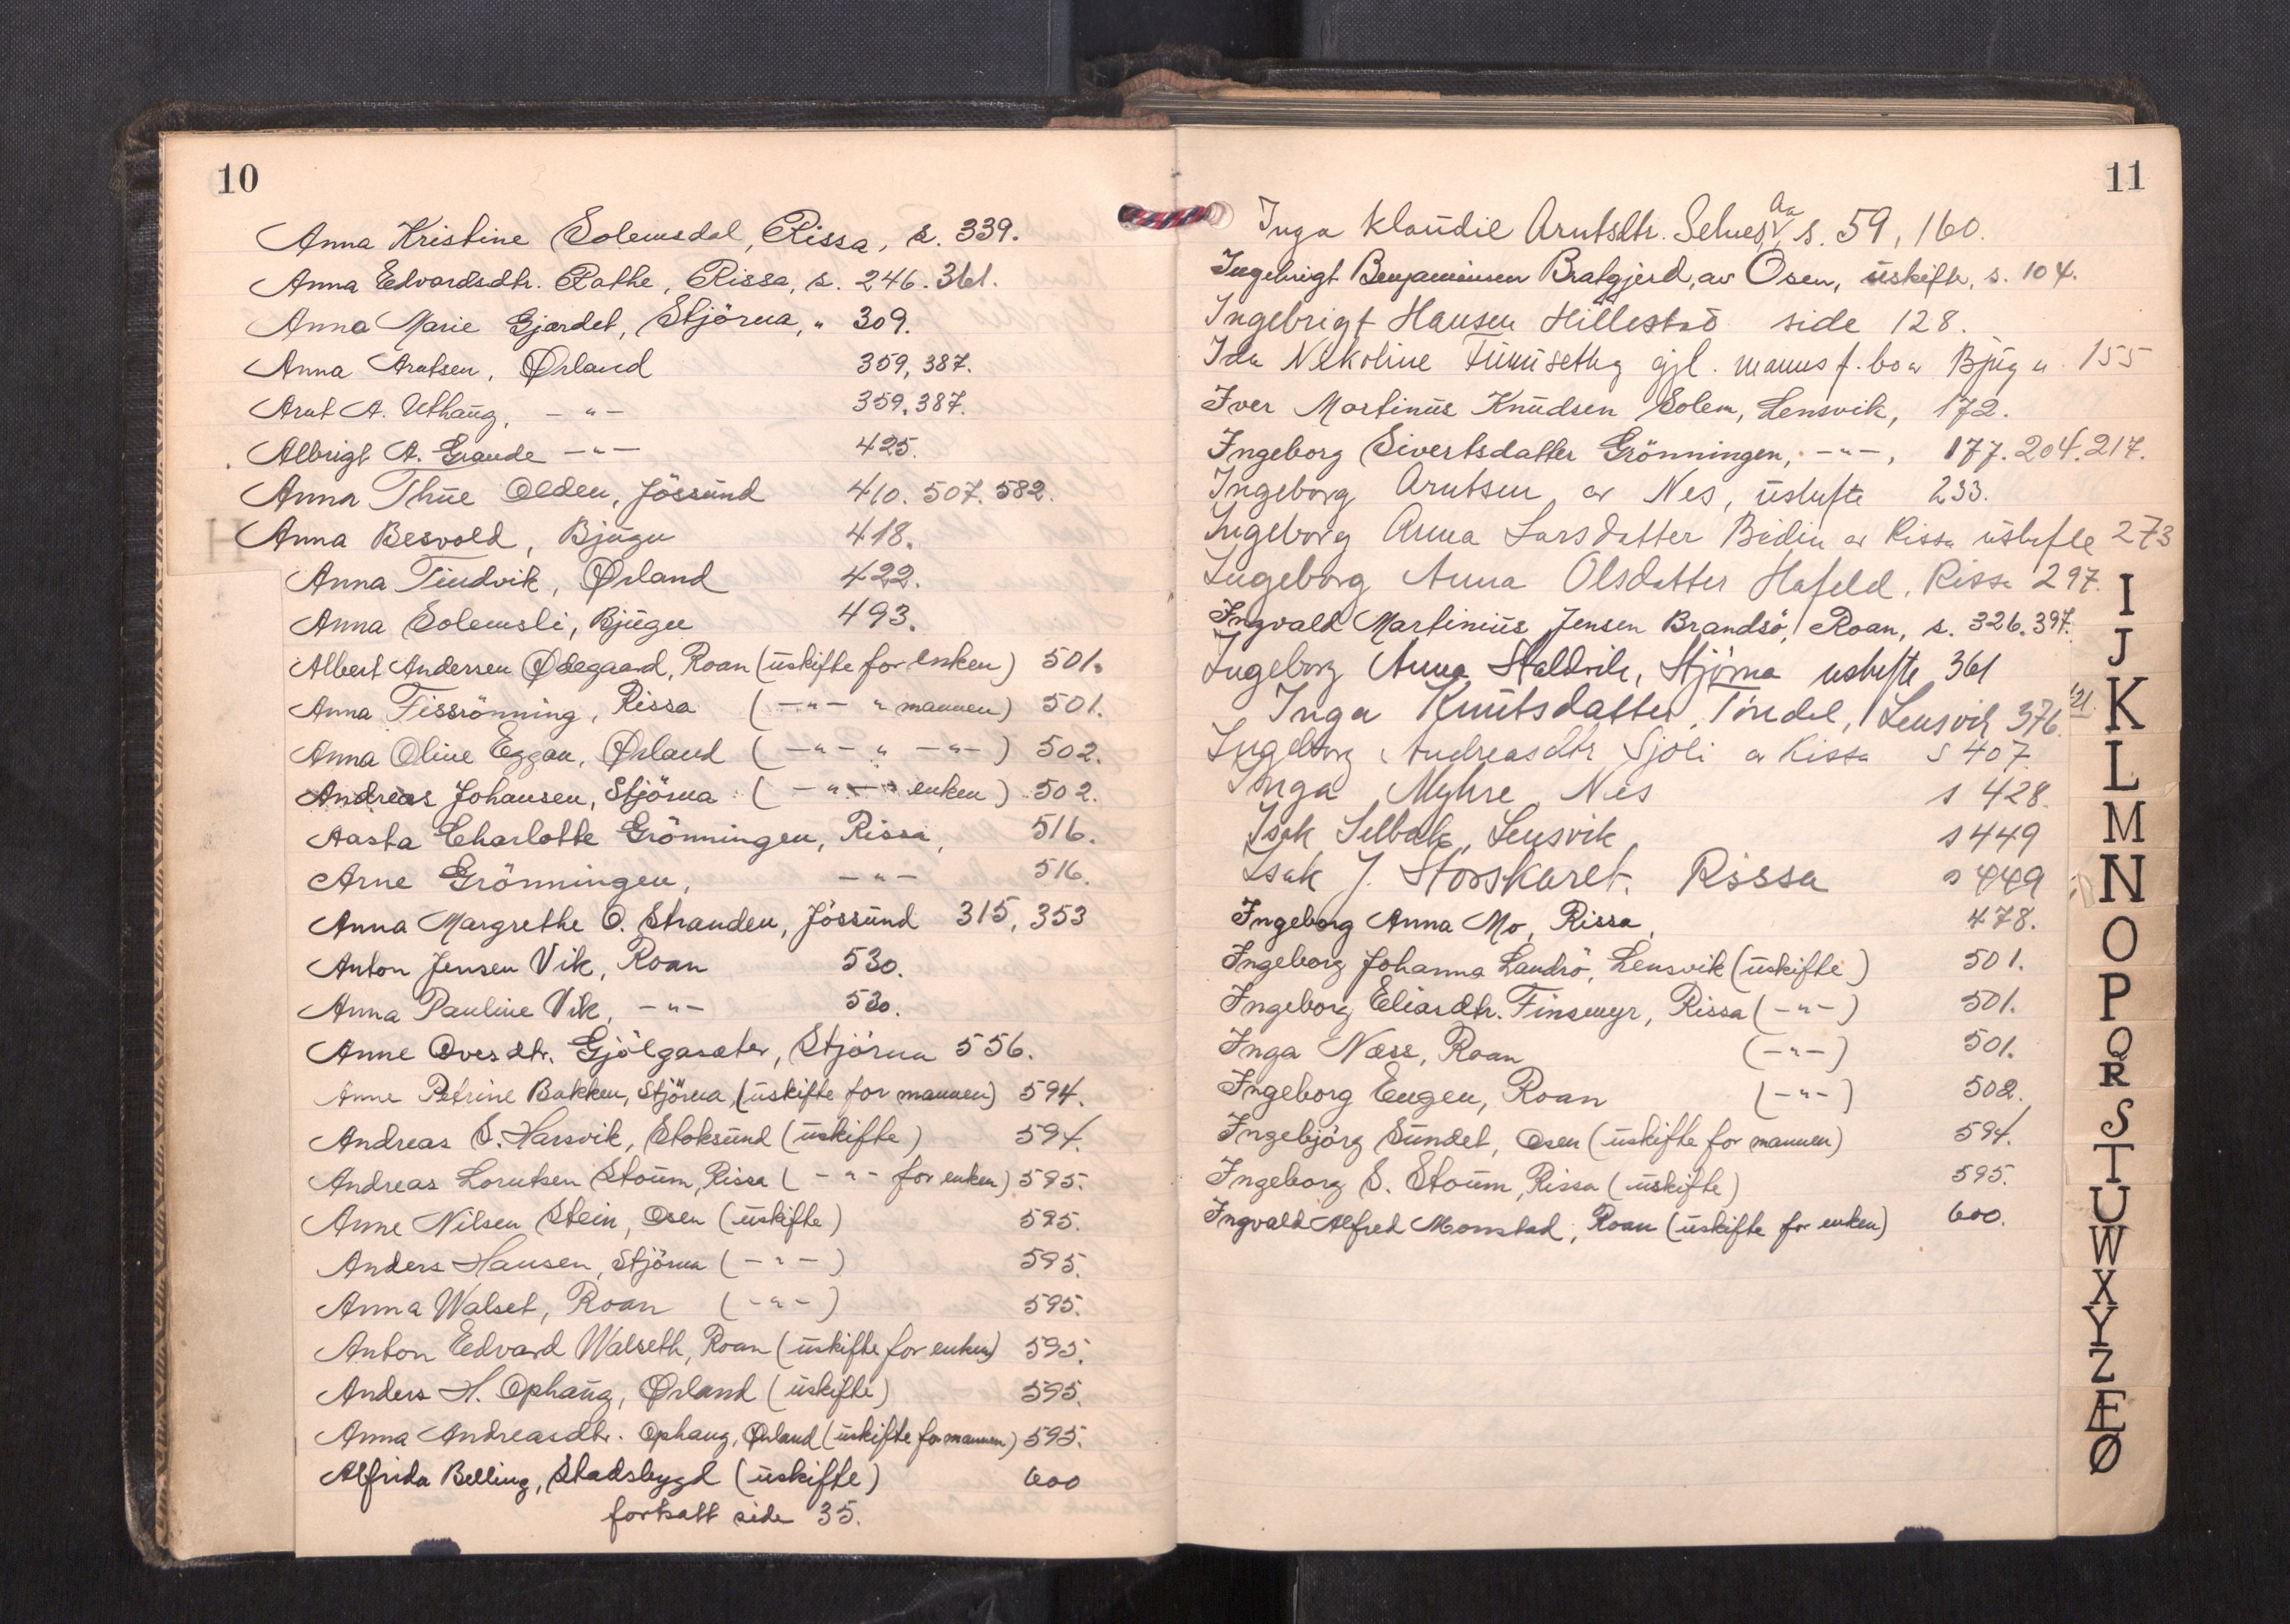 10
Anna Kristine Solemsdal, Rissa, s. 339.
Anna Edvardsdtr. Rathe, Rissa, s. 246. 361.
Anna Marie Gjærdet, Stjörna, " 309.
Anna Arntsen, Ørland 359, 387.
Arnt A. Uthaug, -"- 359. 387.
Albrigt A. Grande -"- 425.
Anna Thue Olden, Jössund 410. 507. 582.
Anna Besvold, Bjugn 418.
Anna Tindvik, Ørland 422.
Anna Solemsli, Bjugn 493.
Albert Andersen Ødegaard, Roan (uskifte for enken) 501.
Anna Fissrönning, Rissa (-"- " mannen) 501.
Anna Oline Eggan, Ørland (-"- " -"-) 502.
Andreas Johansen, Stjörna (-"- enken) 502.
Aasta Charlotte Grönningen, Rissa, 516.
Arne Grönningen, -"- 516.
Anna Margrethe O. Stranden, Jössund 315, 353
Anton Jensen Vik, Roan 530.
Anna Pauline Vik, -"- 530.
Anne Ovesdtr. Gjölgasæter, Stjörna 556.
Anne Petrine Bakken, Stjörna, (uskifte for mannen) 594.
Andreas S. Harsvik, Stoksund (uskifte) 594.
Andreas Lorntsen Stoum, Rissa (-"- for enken) 595.
Anne Nilsen Stein, Osen (uskifte) 595.
Anders Hansen, Stjörna (-"-) 595.
Anna Walset, Roan (-"-) 595.
Anton Edvard Walseth, Roan (uskifte for enken) 595.
Anders H. Ophaug, Ørland (uskifte) 595.
Anna Andreasdtr. Ophaug, Ørland (uskifte for mannen) 595.
Alfrida Belling, Stadsbygd (uskifte) 600
fortsatt side 35.
11
Inga Klaudie Arntsdtr. Selnes, Aa s. 59, 160.
Ingebrigt Benjaminsen Bratgjerd, av Osen, uskifte, s. 104.
Ingebrigt Hansen Hillestad side 128.
Ida Nikoline gjl. manns f. bo Bjugn 155
Iver Martinus Knudsen Solem, Lensvik, 172.
Ingeborg Sivertsdatter Grönningen, -"-, 177. 204. 217.
Ingeborg Arntsen av Nes, uskifte 233.
Ingeborg Anna Larsdatter av Rissa uskifte 273
Ingeborg Anna Olsdatter Hafeld, Rissa 297.
Ingvald Martinius Jensen Brandsö, Roan, s. 326. 397.
Ingeborg Anna Staldvik, Stjörna uskifte 361
Inga Knutsdatter Töndel, Lensvik 376. 421.
Ingeborg Andreasdtr Sjöli av Rissa s 407.
Inga Myhre Nes s 428.
Isak Selbak, Lensvik s 449
Isak J. Storskaret. Rissa s 449
Ingeborg Anna Mo, Rissa, 478.
Ingeborg Johanna Landrö, Lensvik (uskifte) 501.
Ingeborg Eliasdtr. Finsmyr, Rissa (-"-) 501.
Inga Næss, Roan (-"-) 501.
Ingeborg Engen, Roan (-"-) 502.
Ingebjörg Sundet, Osen (uskifte for mannen) 594.
Ingeborg S. Stoum, Rissa (uskifte) 595.
Ingvald Alfred Monstad, Roan (uskifte for enken) 600.
I
J
K
L
M
N
O
P
Q
R
S
T
U
W
X
Y
Z
Æ
Ø